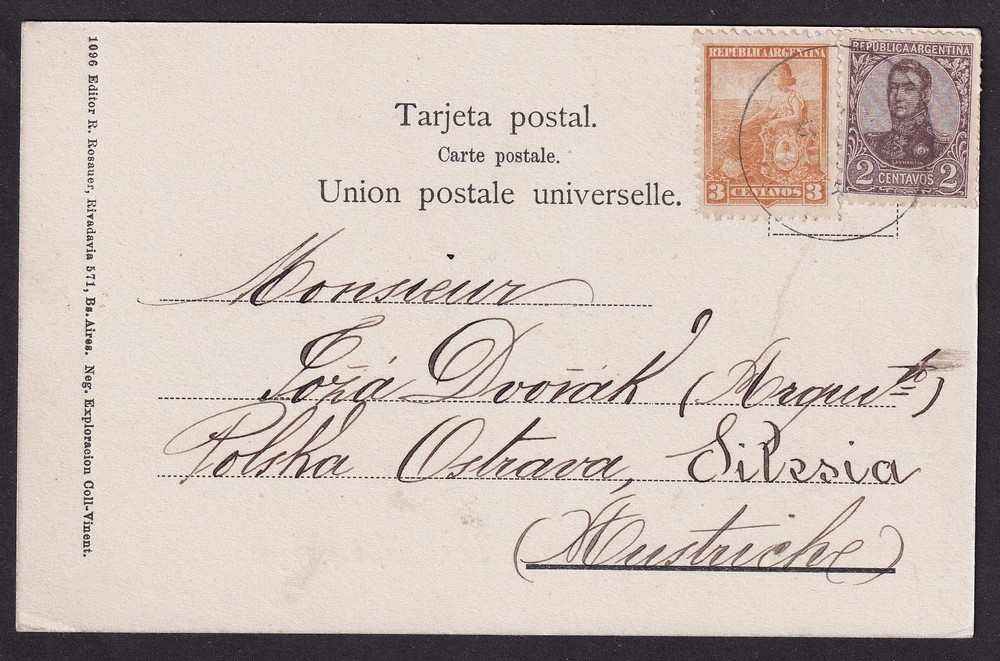 REPUBLICA ARGENTINA
3 CENTAVOS 3
REPUBLICA ARGENTINA
SAN MARTIN
2 CENTAVOS 2
Tarjeta postal.
Carte postale.
Union postale universelle.
Monsieur
Joža Dvořák (Arqueto)
Polska Ostrava, Silesia
(Austriche)
1096 Editor R. Rosauer, Rivadavia 571, Bs. Aires. Neg. Exploracion Coll-Vinent.